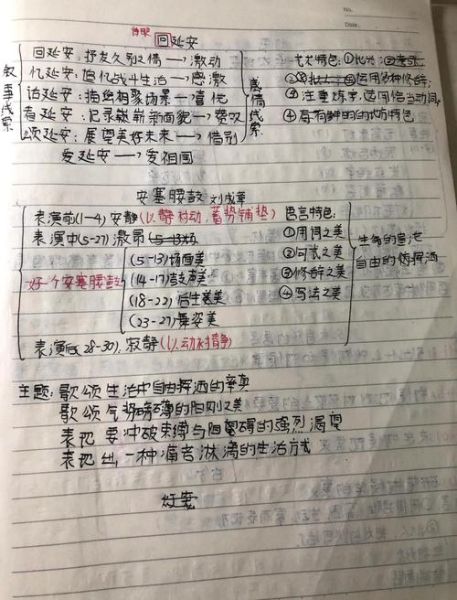 No.
Date.
回延安
叙事线索
回延安：抒发久别之情→激动
忆延安：追忆战斗生活→感激
话延安：描绘相聚场景→喜悦
看延安：记录崭新面貌→赞叹
颂延安：展望美好未来→惜别
感情线索
艺术特色：①比兴
③运用多种修辞
③注重炼字，选用恰当动词
④具有鲜明的地方特色
爱延安→爱祖国
安塞腰鼓 刘成章
表演前(1-4)安静(以静衬动，蓄势铺垫)
表演中(5-27)激昂
好一个安塞腰鼓
(5-13)场面美
(14-17)鼓声美
(18-22)后生美
(23-27)舞姿美
表演后(28-30)，寂静(以动衬静)
语言特色：
①用词之美
②句式之美
③修辞之美
④写法之美
生命的宣泄
自由的挥洒
主题：歌颂生活中自由挥洒的率真
歌颂气势磅礴的阳刚之美
表现要冲破束缚与阻碍的强烈渴望
表现出一种痛苦淋漓的生活方式